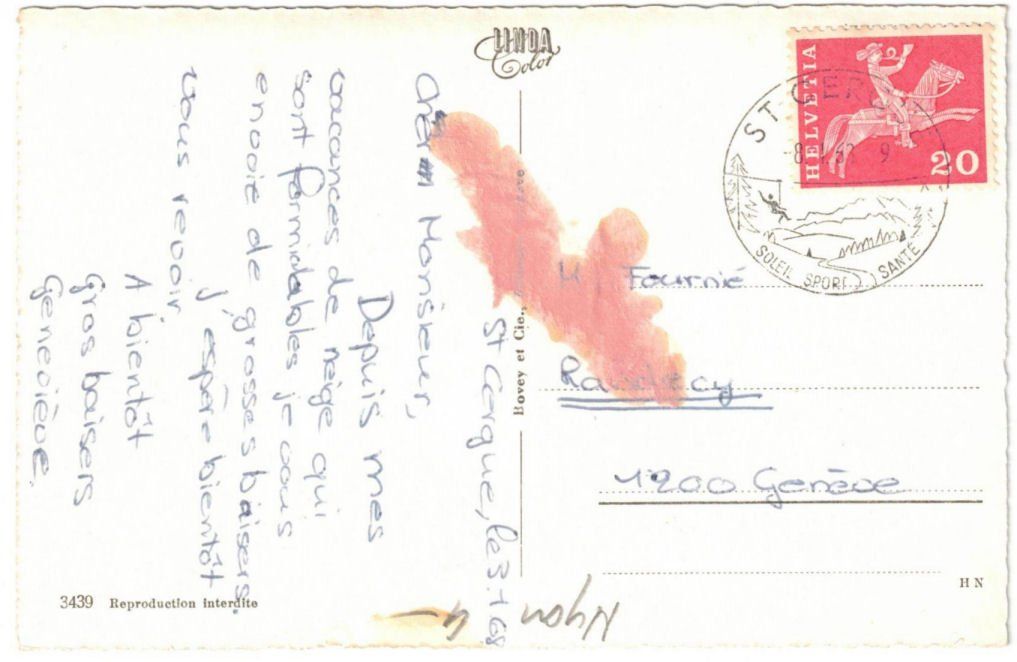 St Cergue, le 3.1.68
Cher Monsieur,
Depuis mes
vacances de neige qui
sont formidables je vous
envoie de grosses baisers.
J'espère bientôt
vous revoir
A bientôt
Gros baisers
Geneviève.
LINDA
Color
Bovey et Cie.,
3439 Reproduction interdite
HELVETIA
20
ST CERGUE
SOLEIL SPORT SANTÉ
M Fournié
1200 Genève
HN
Nyon
4 -